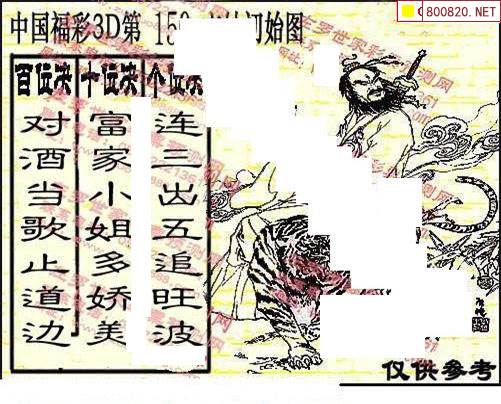 800820.NET
中国福彩3D第 15 始图
百位决
对酒当歌止道边
十位决
富家小姐多娇美
个位决
连三出五追旺波
仅供参考